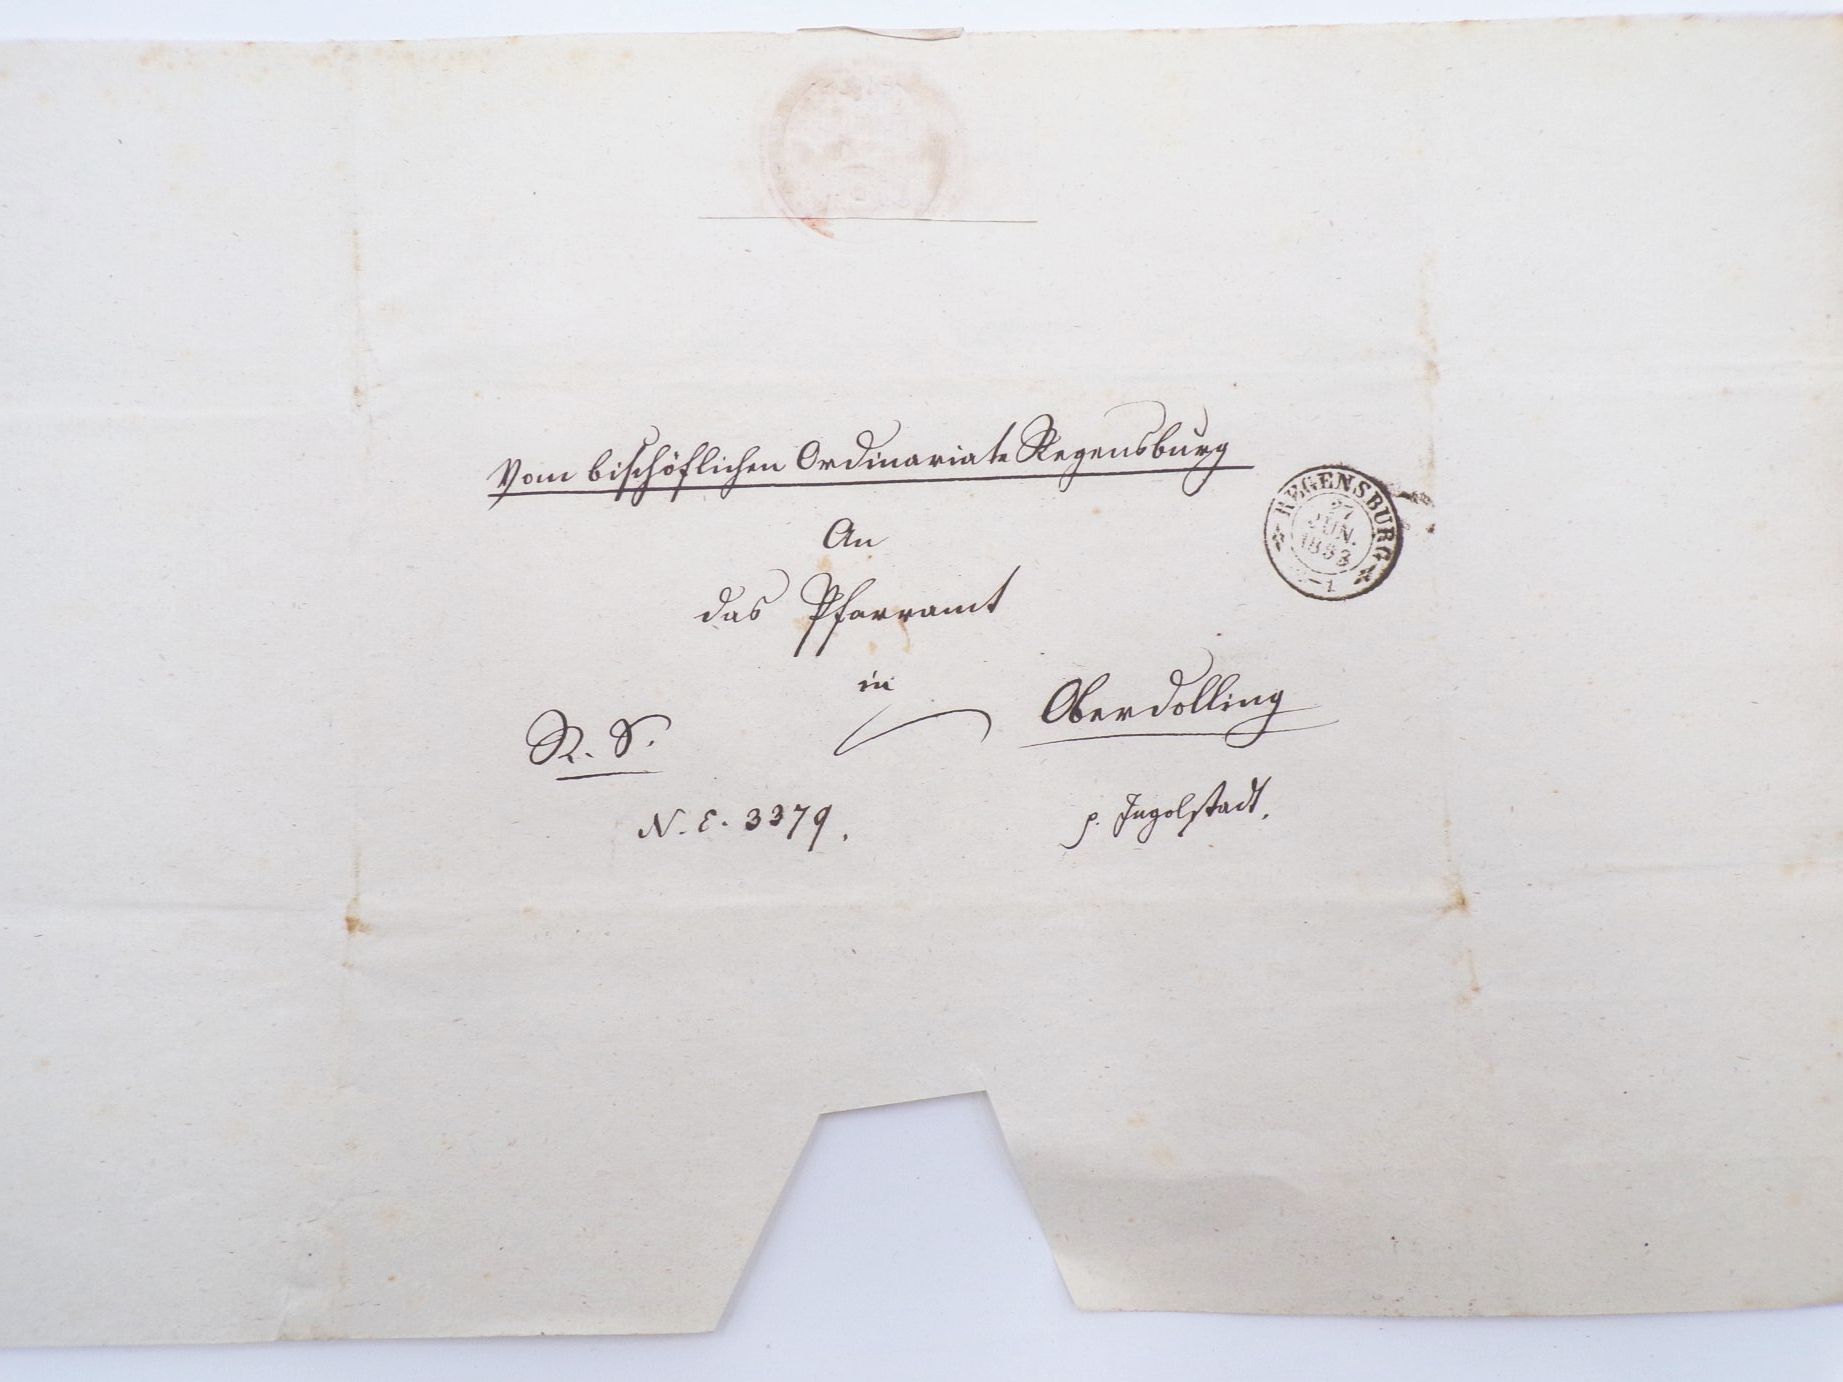 Vom bischöflichen Ordinariate Regensburg
REGENSBURG
27
JUN.
1853
An
das Pfarramt
in
Oberdolling
R. S.
N. E. 3379.
p. Ingolstadt.